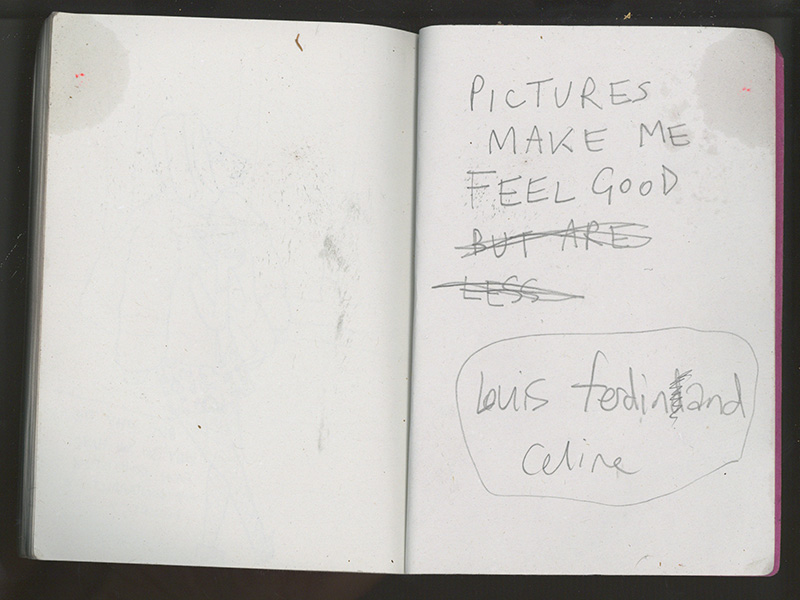 PICTURES
MAKE ME
FEEL GOOD
BUT ARE
LESS
Louis ferdinand
Celine